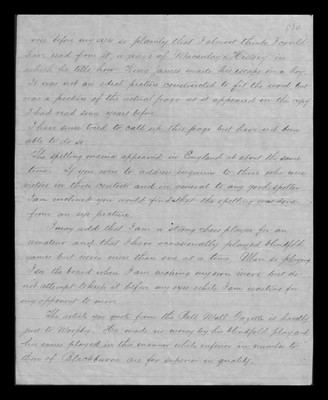 rose before my eyes so plainly that I almost think I could
have read from it a page of Macaulay's History in
which he tells how King James made his escape in a boy.
It was not an ideal picture constructed to fit the word but
was a picture of the actual page as it appeared in the copy
I had read some years before.
I have since tried to call up this page but have not been
able to do so
The spelling mania appeared in England at about the same
time. If you were to address inquiries to those who were
victors in those contests and in general to any good speller
I am inclined you would find that the spelling was done
from an eye picture.
I may add that I am a strong chess player for an
amateur and that I have occasionally played blindfold
games but never more than one at a time. When so playing
I see the board when I am making my own move but do
not attempt to keep it before my eyes while I am waiting for
my opponent to move.
The article you quote from the Pall Mall Gazette is hardly
just to Morphy. He made no money by his blindfold play and
his games played in this manner while inferior in number to
those of Blackburne are far superior in quality.